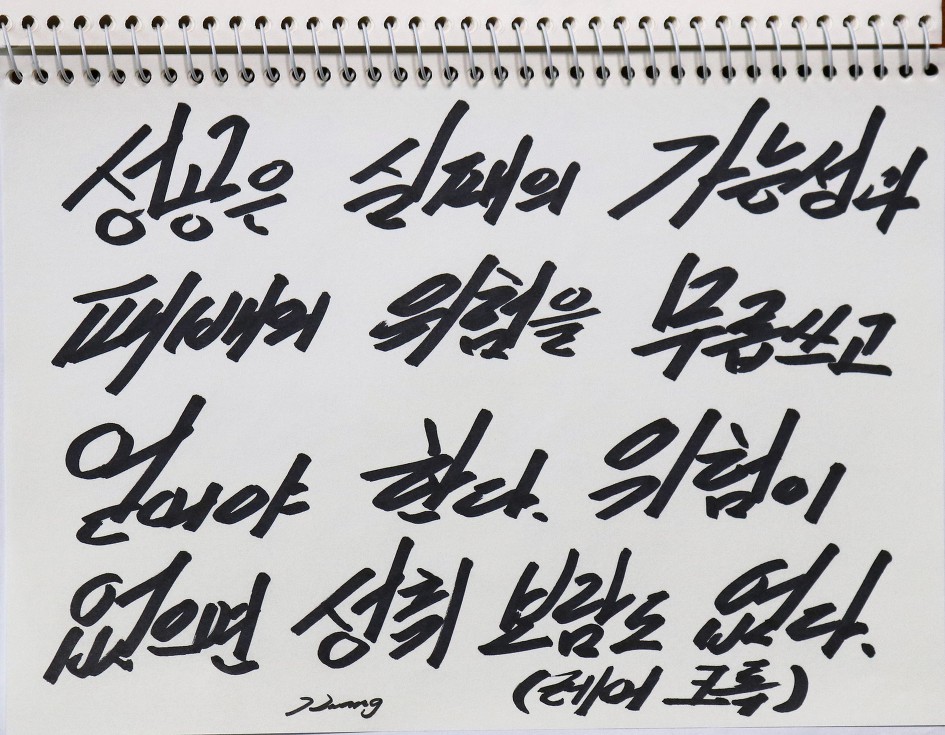 성공은 실패의 가능성과
패배의 위험을 무릅쓰고
얻어야 한다. 위험이
없으면 성취 보람도 없다.
(레이 크록)